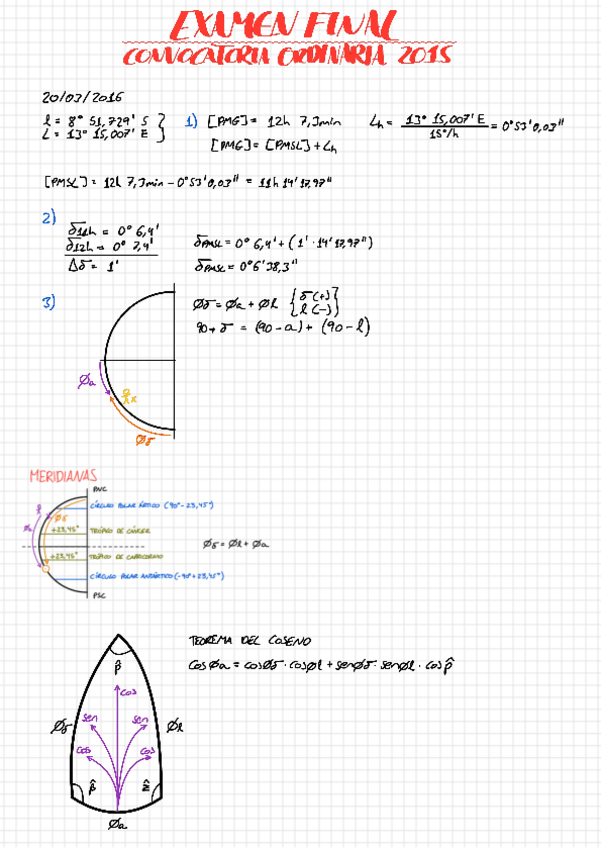 EXAMEN FINAL
CONVOCATORIA ORDINARIA 2015
20/03/2016
l = 8° 51,729' S
L = 13° 15,007' E
1) [PMG] = 12h 7,3min
Lh = 13° 15,007' E / 15°/h = 0°53'0,03''
[PMG] = [PMSL] + Lh
[PMSL] = 12h 7,3min - 0°53'0,03'' = 11h 14' 17,97''
2)
δ11h = 0° 6,4'
δ12h = 0° 7,4'
Δδ = 1'
δPMSL = 0° 6,4' + (1' · 14' 17,97'')
δPMSL = 0°6'38,3''
3)
Øδ = Øa + Øl { δ(+) l(-) }
90 + δ = (90 - a) + (90 - l)
Øa
Øδ
MERIDIANAS
PNC
CÍRCULO POLAR ÁRTICO (90° - 23,45°)
l
Øδ
Øa
+23,45° TRÓPICO DE CÁNCER
Øδ = Øl + Øa
+23,45° TRÓPICO DE CAPRICORNIO
CÍRCULO POLAR ANTÁRTICO (-90° + 23,45°)
PSC
TEOREMA DEL COSENO
cos Øa = cosØδ · cosØl + senØδ · senØl · cos p̂
p̂
cos
Øδ
sen
sen
Øl
cos
cos
p̂
ẑ
Øa